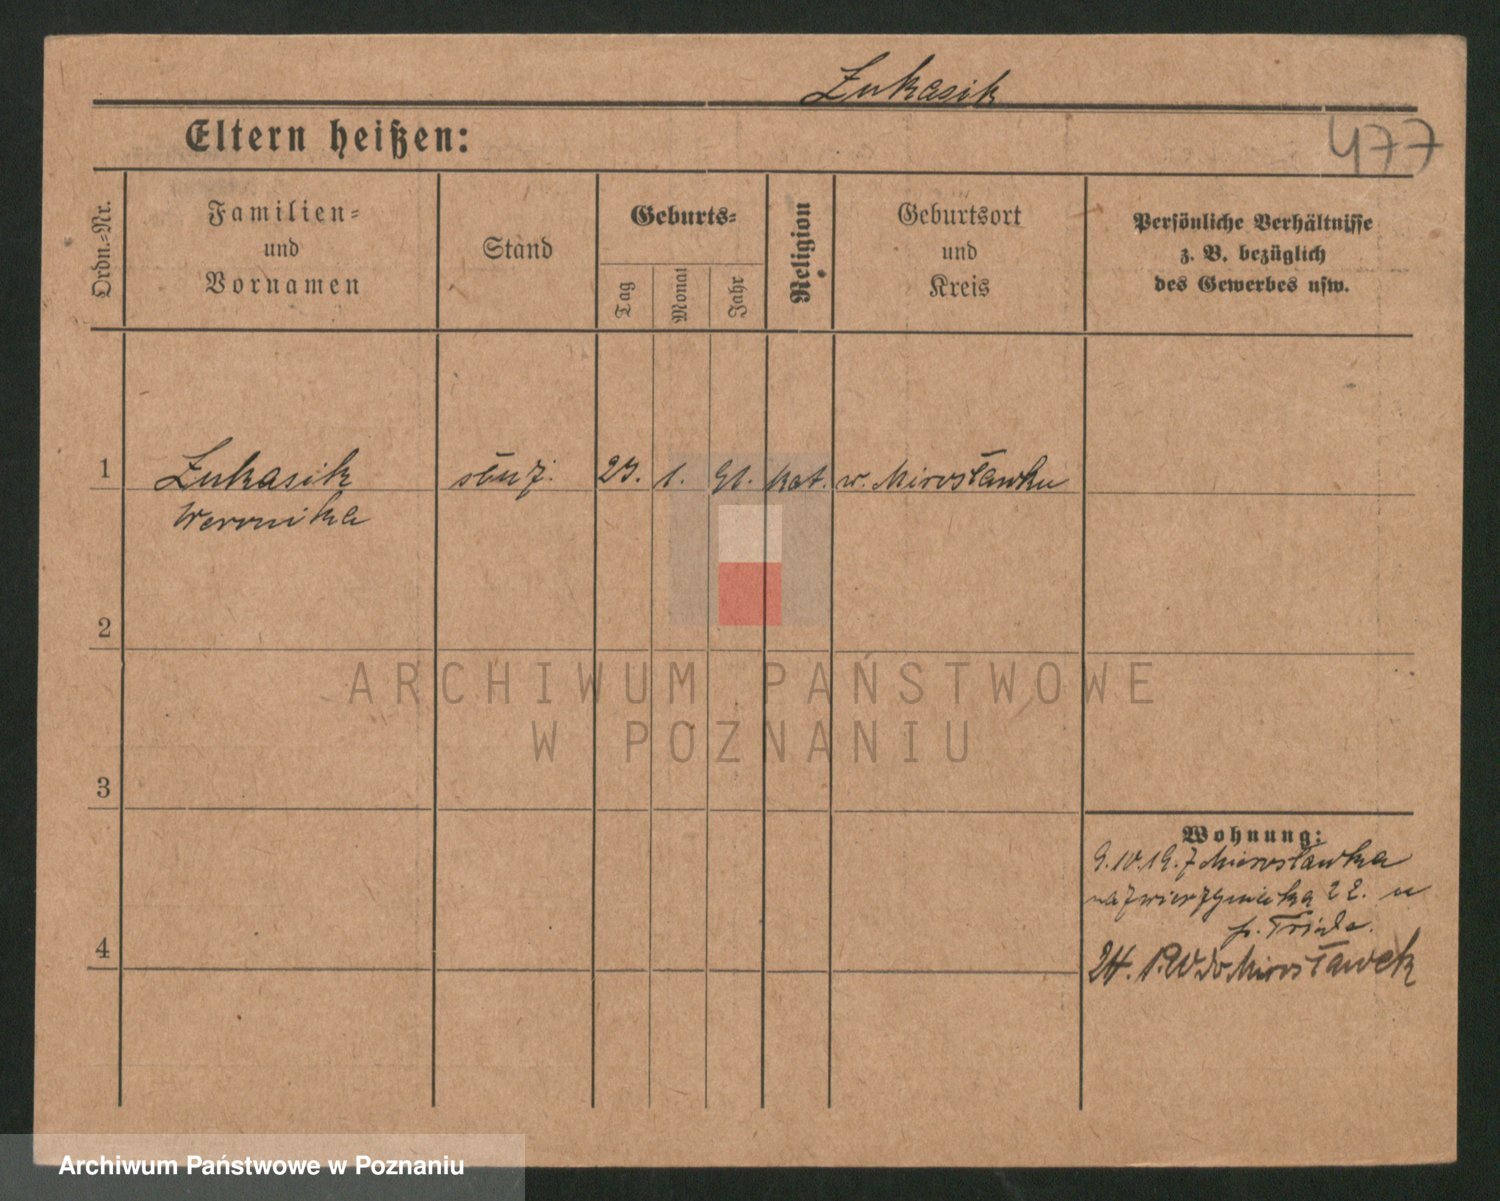 Łukasik
Eltern heißen:
477
Ordn.-Nr.
Familien-
und
Vornamen
Stand
Geburts-
Tag
Monat
Jahr
Religion
Geburtsort
und
Kreis
Persönliche Verhältnisse
z. B. bezüglich
des Gewerbes usw.
1 Łukasik służ. 1. 91. kat. w. Mirosławku
Weronika
2
ARCHIWUM PAŃSTWOWE
W POZNANIU
3
Wohnung:
9.10.19. z Mirosławka
na Zwierzyniecka 22. u
p. Tride.
4
24. do Mirosławek
Archiwum Państwowe w Poznaniu